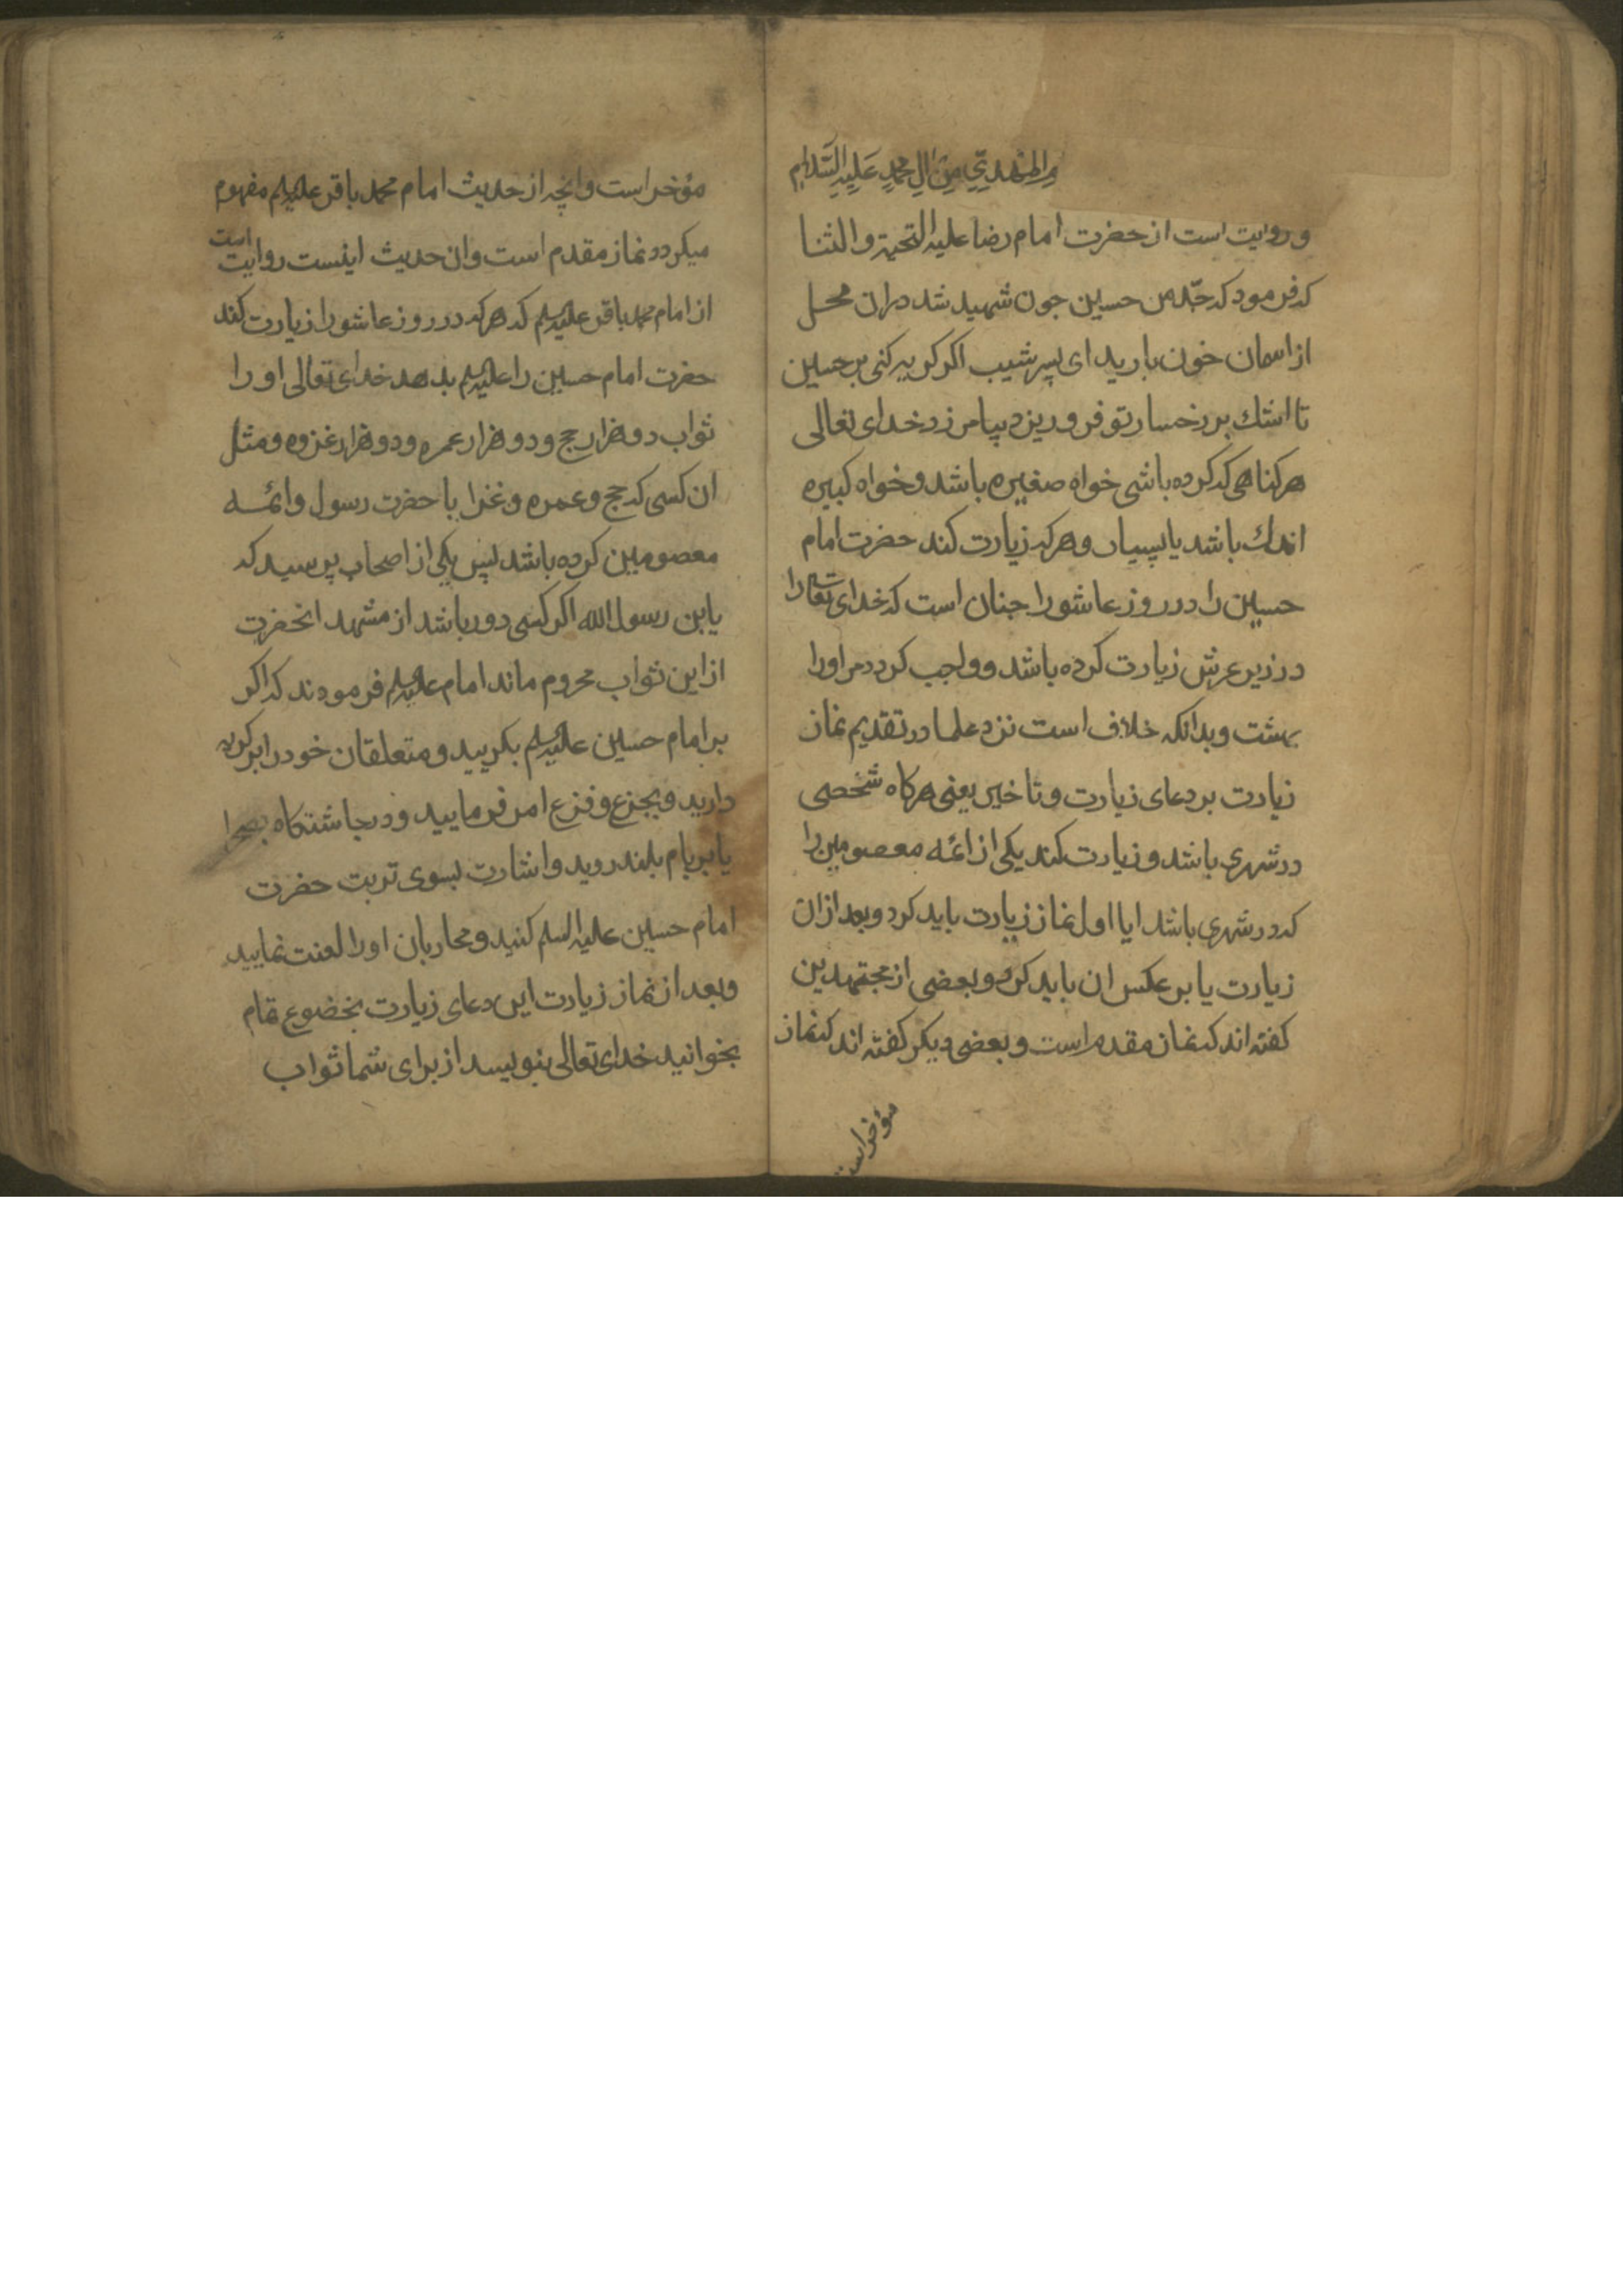 مِ المَهْدِيِّ مِنْ الِ مُحَمَّدٍ عَلَيْهِ السَّلَامِ
و روایت است از حضرت امام رضا علیه التحیة و الثنا
که فرمود که جدّ من حسین جون شهید شد دران محل
از اسمان خون بارید ای پسر شبیب اکر کریه کنی بر حسین
تا اشك بر رخسار تو فرو ریزد بیامرزد خدای تعالی
هر کناهی که کرده باشی خواه صغیره باشد و خواه کبیره
اندك باشد یا بسیار و هر که زیارت کند حضرت امام
حسین را در روز عاشورا جنان است که خدای تعالی را
در زیر عرش زیارت کرده باشد و واجب کردد مر اورا
بهشت و بدانکه خلاف است نزد علما در تقدیم نماز
زیارت بر دعای زیارت و تاخیر یعنی هرکاه شخصی
در شهری باشد و زیارت کند یکی از ائمه معصومین را
که در شهری باشد ایا اول نماز زیارت باید کرد و بعد ازان
زیارت یا بر عکس ان باید کرد و بعضی از مجتهدین
کفته اند که نماز مقدم است و بعضی دیکر کفته اند که نماز
مؤخر است
مؤخر است و انچه از حدیث امام محمد باقر علیه السلم مفهوم
میکردد نماز مقدم است و ان حدیث اینست روایت است
از امام محمد باقر علیه السلم که هر که در روز عاشورا زیارت کند
حضرت امام حسین را علیه السلم بدهد خدای تعالی او را
ثواب دو هزار حج و دو هزار عمره و دو هزار غزوه و مثل
ان کسی که حج و عمره و غزا با حضرت رسول و ائمه
معصومین کرده باشد پس یکی از اصحاب پرسید که
یابن رسول الله اکر کسی دور باشد از مشهد انحضرت
از این ثواب محروم ماند امام علیه السلم فرمودند که اکر
بر امام حسین علیه السلم بکریید و متعلقان خود را بر کریه
دارید و بجزع و فزع امر فرمایید و در جاشتکاه بصحرا
یا بر بام بلند روید و اشارت بسوی تربت حضرت
امام حسین علیه السلم کنید و محاربان اورا لعنت نمایید
و بعد از نماز زیارت این دعای زیارت بخضوع تمام
بخوانید خدای تعالی بنویسد از برای شما ثواب